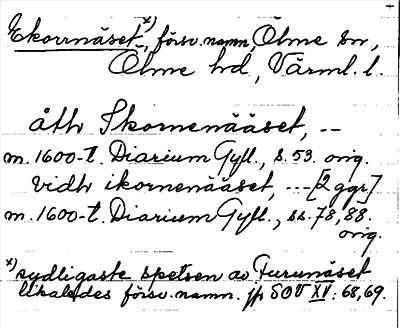 Ekorrnäset x), försv. namn, Ölme sn,
Ölme hd, Värml. l.
åth Ikornenääset, --
m. 1600-t. Diarium Gyll., s. 53. orig.
vidh ikornenääset, --- [2 ggr]
m. 1600-t. Diarium Gyll., ss. 78, 88.
orig.
x) sydligaste spetsen av Furunäset
likaledes försv. namn. jfr SOV XV: 68, 69.